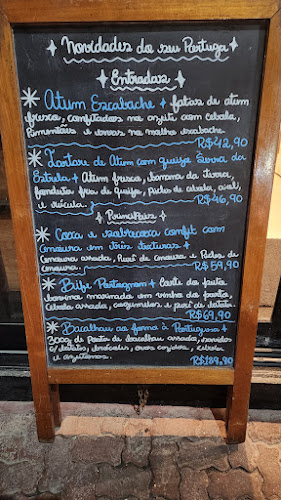 Novidades do seu Portuga
Entradas
Atum Escabeche + fatias de atum
fresco, confitados no azeite com cebola,
Pimentões e ervas no molho escabeche.
R$42,90
Tartare de Atum com queijo Serra da
Estrela + Atum fresco, banana da terra,
fonduta fria de queijo, picles de cebola, aioli,
e rúcula.
R$46,90
Principais
Coxa e sobrecoxa confit com
cenoura em três texturas +
Cenoura assada, Purê de cenoura e Picles de
cenoura.
R$59,90
Bife Portugnon + Corte do
bovina marinada em vinho do porto,
cebola assada, cogumelos e purê de batata.
R$69,90
Bacalhau ao forno à Portuguesa +
300g de Posta de bacalhau assado, servido
c/batatas, brócolis, ovos cozidos, cebola
e azeitonas.
R$189,90